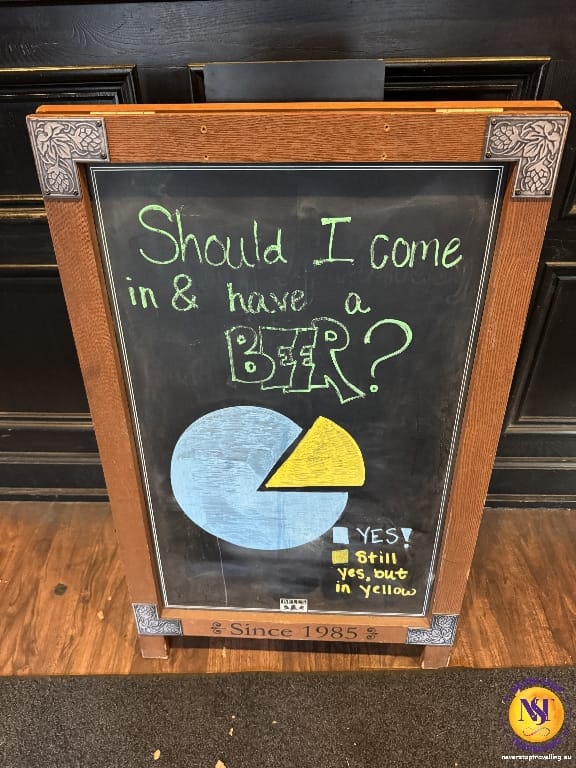 Should I come
in & have a
BEER?
YES!
Still
yes, but
in yellow
BELL'S
Since 1985
NST
neverstoptravelling.eu